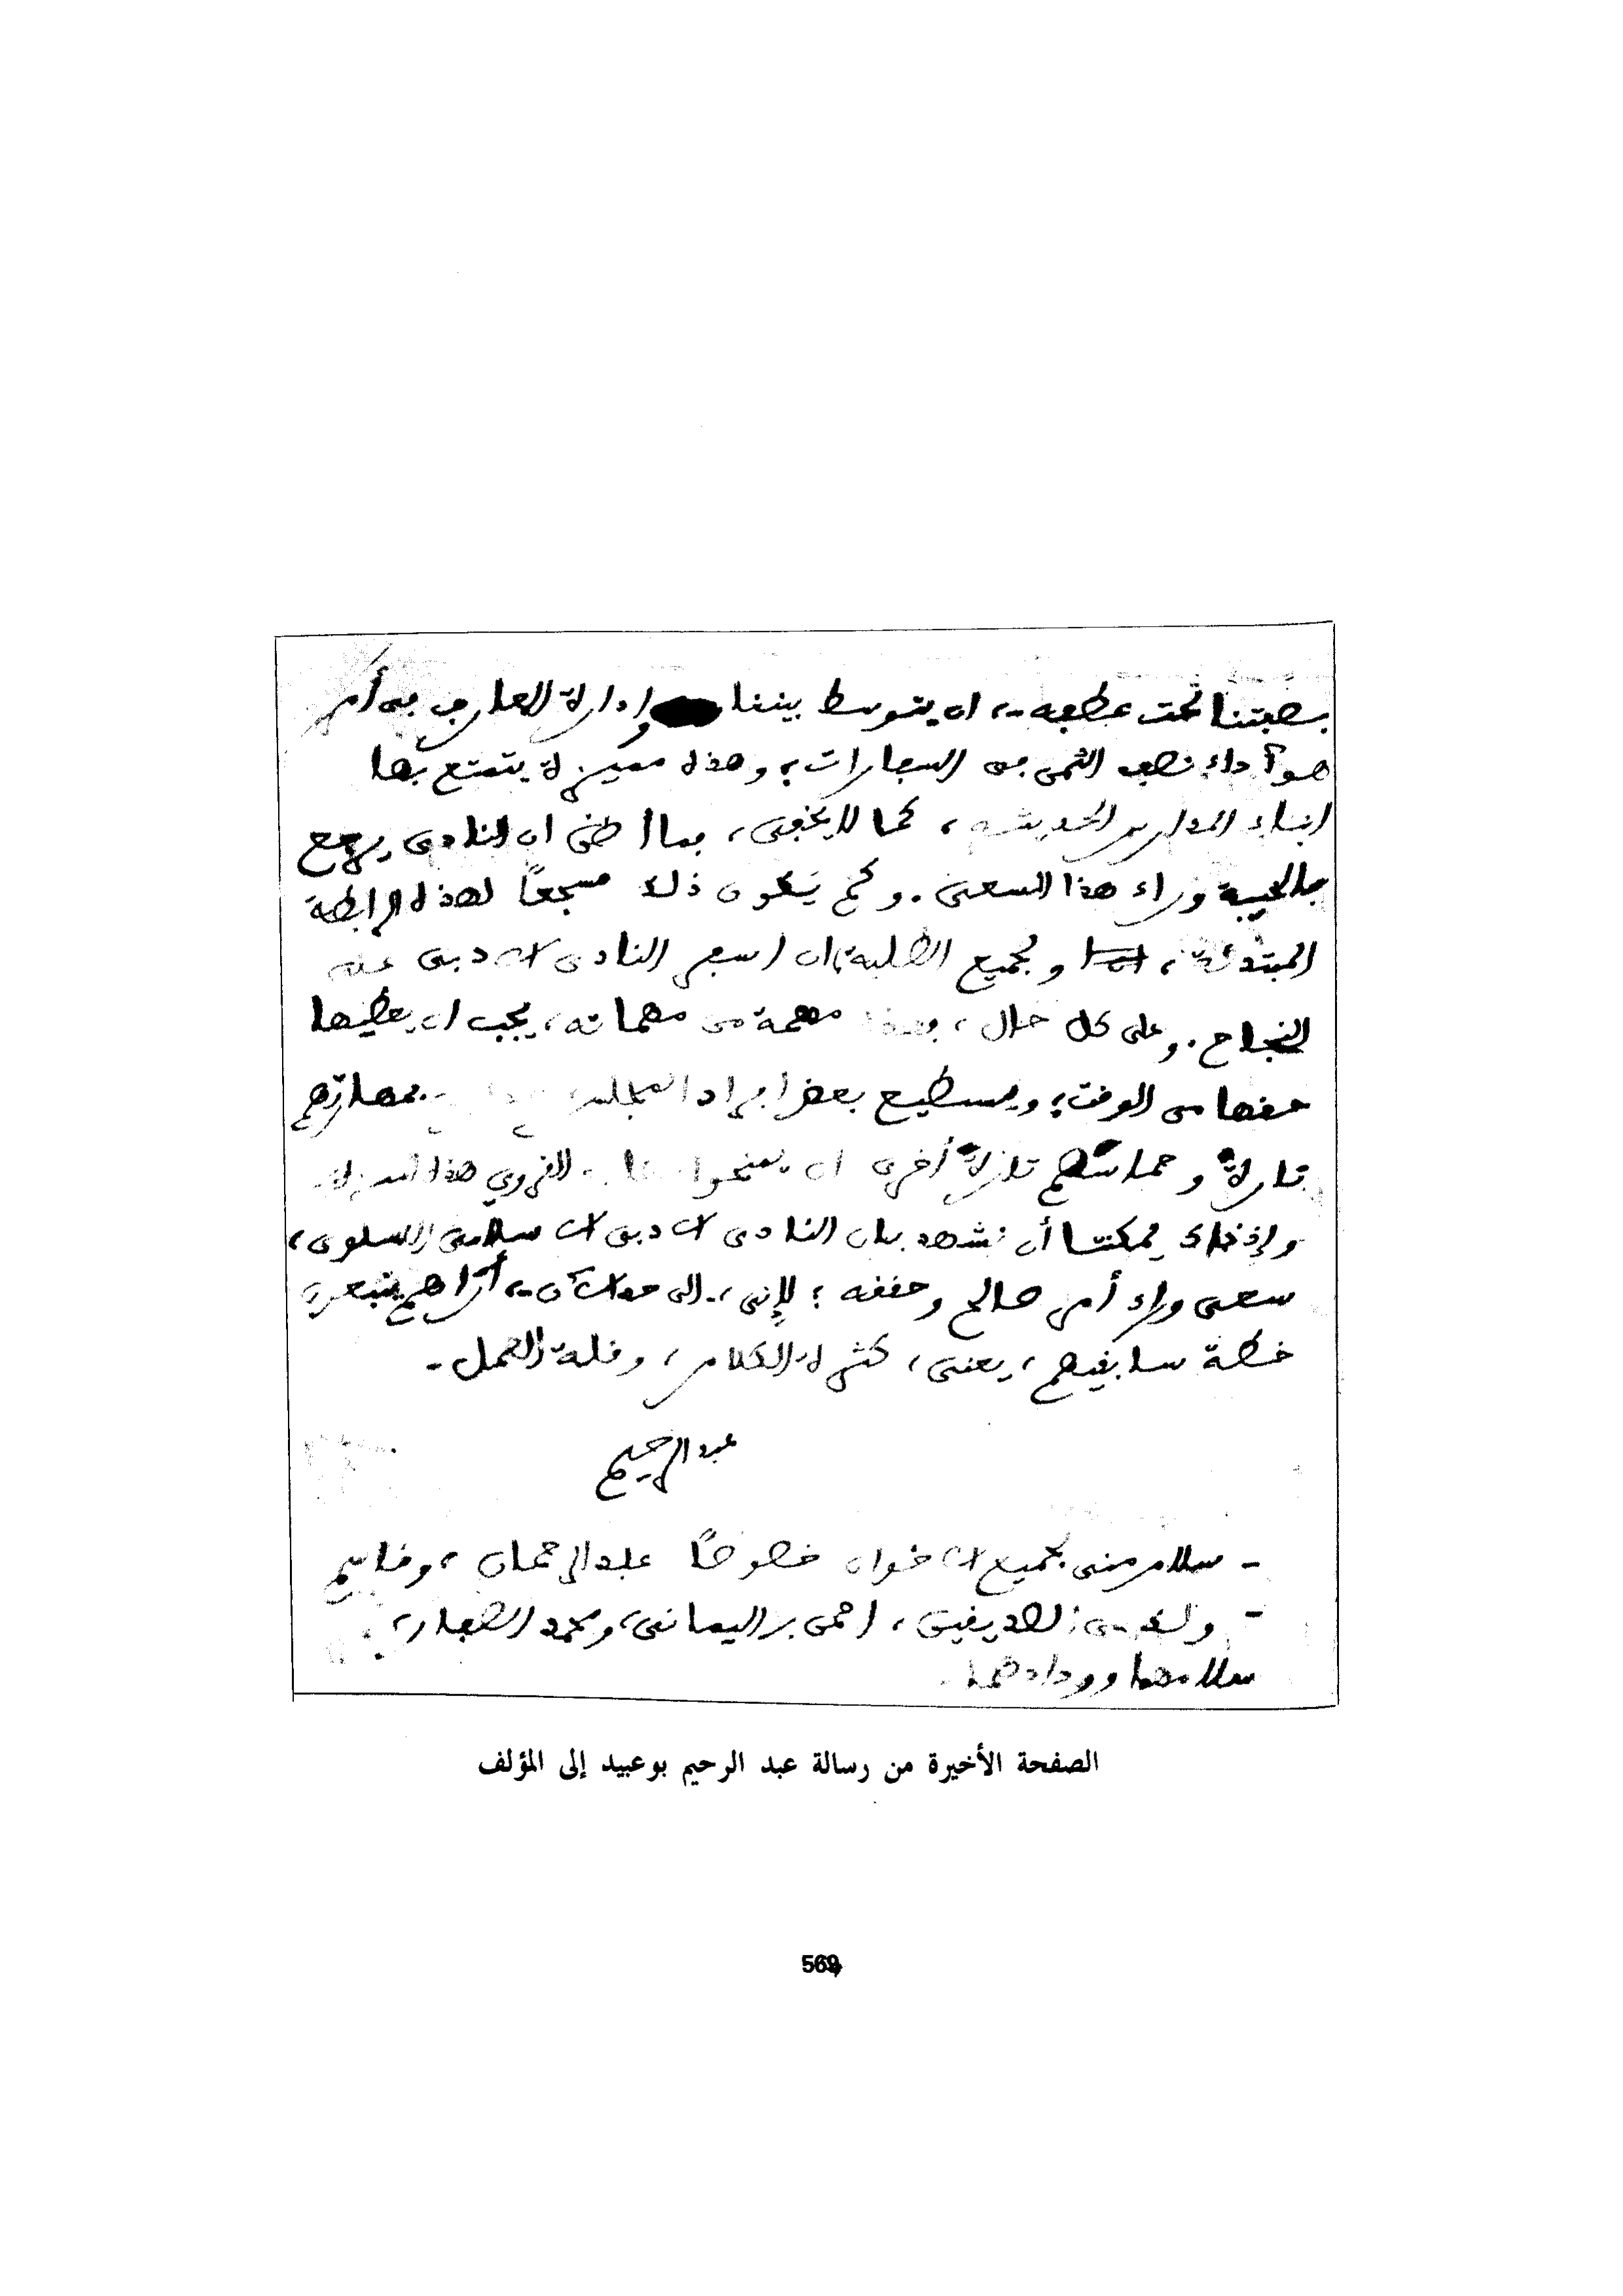 بصفتنا تحت عطفه -، ان يتوسط بيننا وإدارة المعارف في أمر
هو أداء نصف الثمن في السفارات؛ وهذه ميزة يتمتع بها
ابناء المدارس الحديثة، كما لا يخفى، فما أظن ان النادي يرجع
بالخيبة وراء هذا السعي. وكم يكون ذلك مشجعاً لهذه الرابطة
المبتدئة، ولجميع الطلبة، ان اسفر النادي الادبي عنه
النجاح. وعلى كل حال، فهذه مهمة من مهماته، يجب ان يعطيها
حقها من الوقت؛ ويستطيع بعض افراد المجلس بمهارتهم
تارة وحماستهم تارة أخرى ان القروي هذا
وإذ ذاك يمكننا أن نشهد بان النادي الادبي الاسلامي السلوي،
سعى وراء أمر صالح وحققه؛ لإني، - إلى حد الآن -، أراهم يتبعون
خطة سابقيهم، يعني، كثرة الكلام، وقلة العمل -
عبد الرحيم
- سلام مني لجميع الاخوان خصوصاً عبد الرحمان، وقاسم
- ولك من الصديقين، احمد بن اليماني، ومحمد الصفار،
سلامهما وودادهما.
الصفحة الأخيرة من رسالة عبد الرحيم بوعبيد إلى المؤلف
569